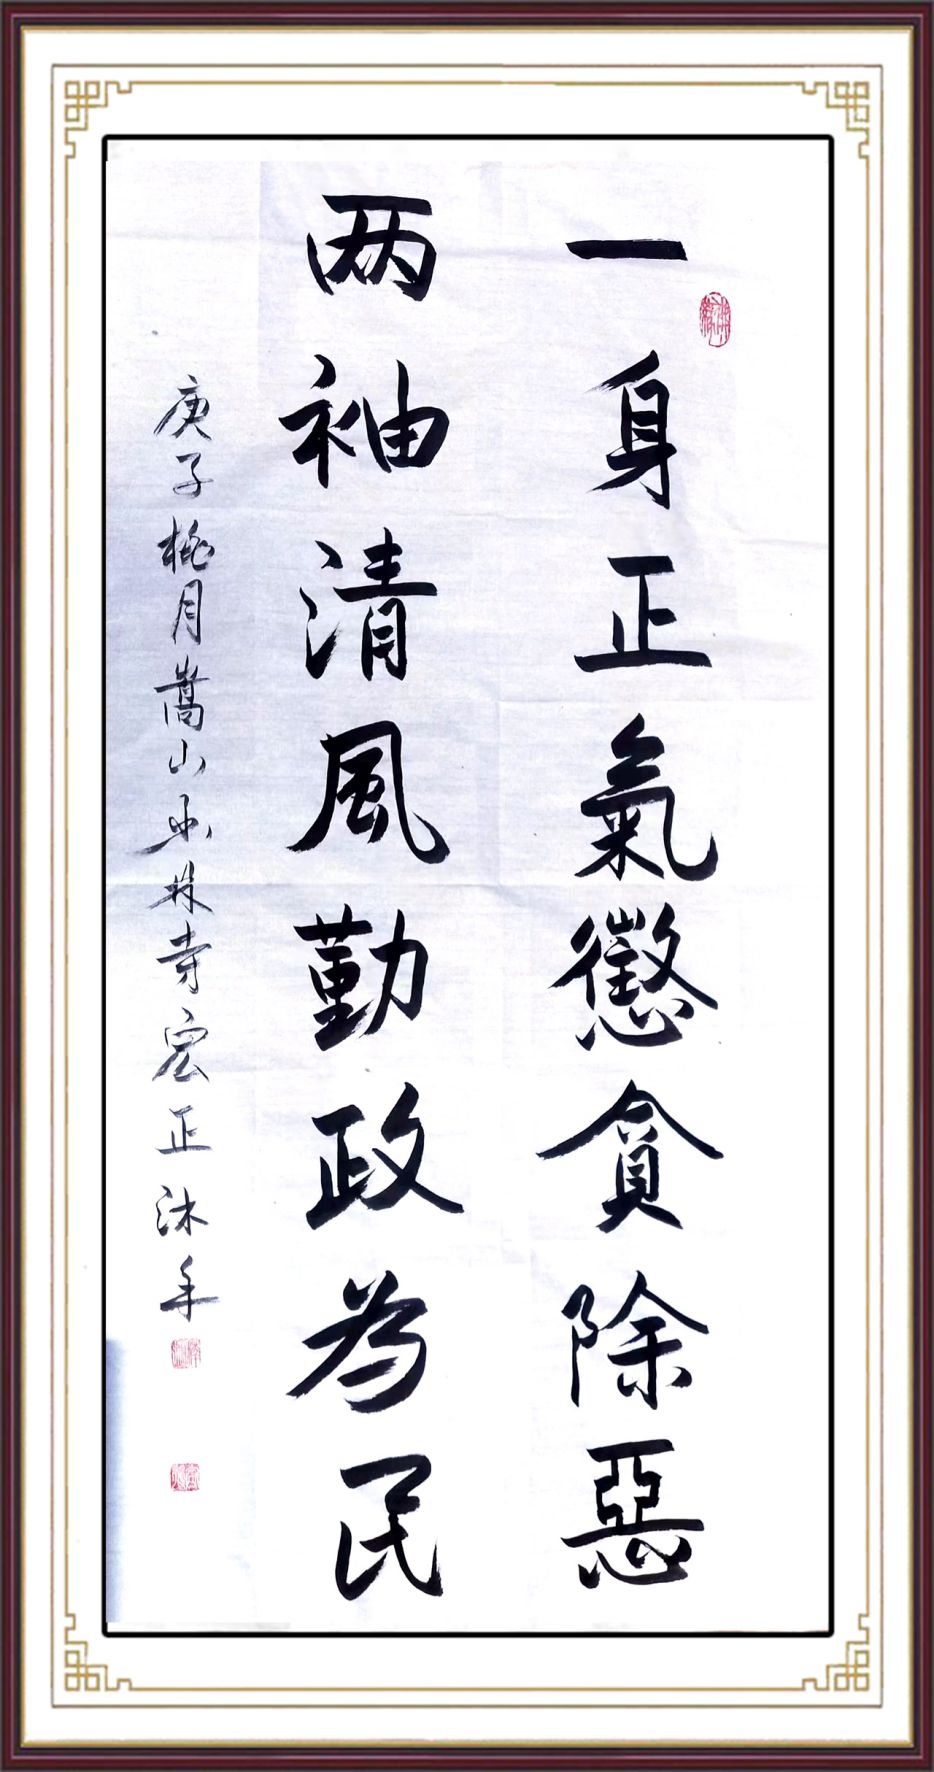 一身正氣懲貪除惡
两袖清風勤政為民
庚子梅月嵩山少林寺宏正沐手